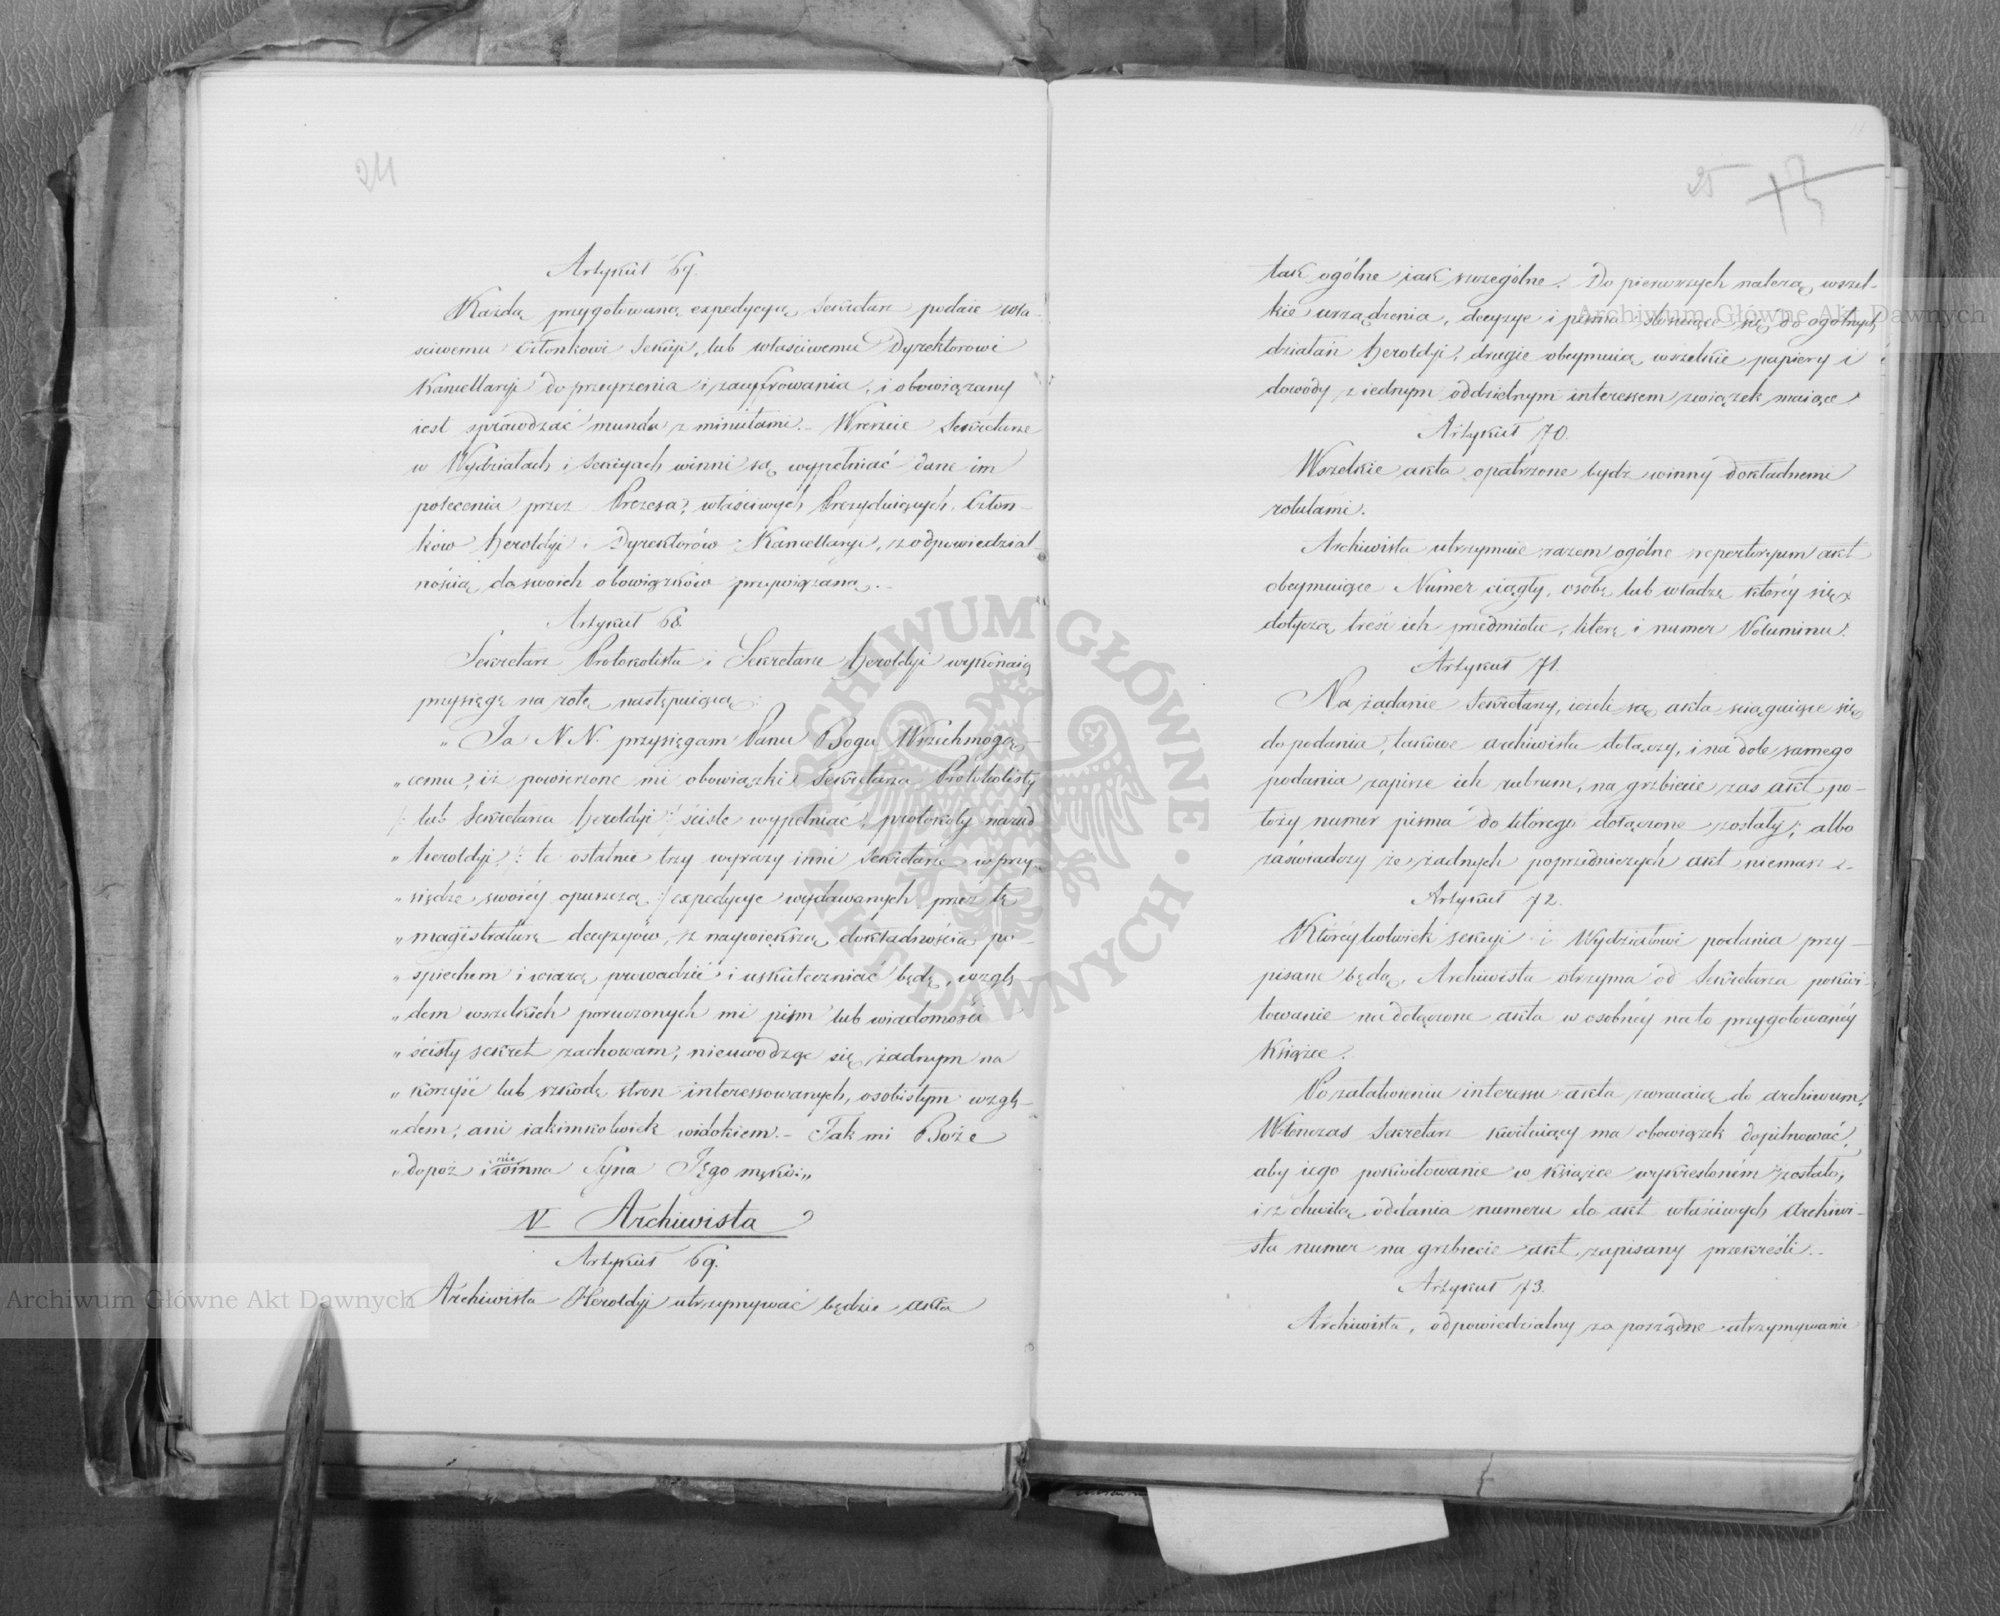 24
Artykuł 67.
Każdą przygotowaną expedycyą Sekretarz podaie wła-
sciwemu Członkowi Sekcyi, lub właściwemu Dyrektorowi
Kancellaryi do przeyrzenia i zacyfrowania, i obowiązany
iest sprawdzać munda z minutami. Wreszcie Sekretarze
w Wydziałach i Sekcyach winni są wypełniać dane im
polecenia przez Prezesa, właściwych Prezyduiących, Człon-
ków Heroldyi i Dyrektorów Kancellaryi, z odpowiedzial-
nością do swoich obowiązków przywiązaną.
Artykuł 68.
Sekretarz Protokolista i Sekretarz Heroldyi wykonaią
przysięgę na rotę następuiącą:
„ Ja N N. przysięgam Panu Bogu Wszechmogą-
„ cemu, iż powierzone mi obowiązki Sekretarza Protokolisty
/: lub Sekretarza Heroldyi :/ ściśle wypełniać, protokoły narad
„ heroldyi /: te ostatnie trzy wyrazy inni Sekretarze w przy-
„ siędze swoiéy opuszczą :/ expedycye wydawanych przez tę
„ magistraturę decyzyów, z naywiększą dokładnością po-
„ spiechem i wiarą prowadzić i uskuteczniać będę, wzglę-
„ dem wszelkich poruczonych mi pism lub wiadomości
„ ścisły sekret zachowam, nieuwodząc się żadnym na
„ korzyść lub szkodę stron interessowanych, osobistym wzglę-
„ dem, ani iakimkolwiek widokiem. Tak mi Boże
„ dopoż i niewinna Syna Jego męko:„
V Archiwista
Artykuł 69.
Archiwista Heroldyi utrzymywać będzie akta
25
tak ogólne iak szczególne. Do pierwszych należą wszel-
kie urządzenia, decyzye i pisma stosuiące się do ogólnych
działań Heroldyi, drugie obeymuią wszelkie papiery i
dowody z iednym oddzielnym interessem związek maiące.
Artykuł 70.
Wszelkie akta opatrzone bydź winny dokładnemi
rotulami.
Archiwista utrzymuie zarazem ogólne repertoryum akt
obeymuiące Numer ciągły, osobę lub władzę któréy się
dotyczą treść ich przedmiotu, literę i numer Voluminu.
Artykuł 71.
Na żądanie Sekretarzy, ieżeli są akta ściągaiące się
do podania, takowe archiwista dołączy, i na dole samego
podania zapisze ich rubrum, na grzbiecie zas akt po-
łoży numer pisma do którego dołączone zostały; albo
zaświadczy że żadnych poprzedniczych akt niemasz.
Artykuł 72.
Któréykolwiek sekcyi i Wydziałowi podania przy-
pisane będą, Archiwista otrzyma od Sekretarza pokwi-
towanie na dołączone akta w osobnéy na to przygotowanéy
Książce.
Po załatwieniu interessu akta zwracaią do archiwum.
Wtenczas Sekretarz kwituiący ma obowiązek dopilnować,
aby iego pokwitowanie w książce wykreślonem zostało,
i z chwilą oddania numeru do akt właściwych Archiwi-
sta numer na grzbiecie akt zapisany przekreśli.
Artykuł 73.
Archiwista, odpowiedzialny za porządne utrzymywanie
Archiwum Główne Akt Dawnych
Archiwum Główne Akt Dawnych
ARCHIWUM GŁÓWNE · AKT DAWNYCH ·